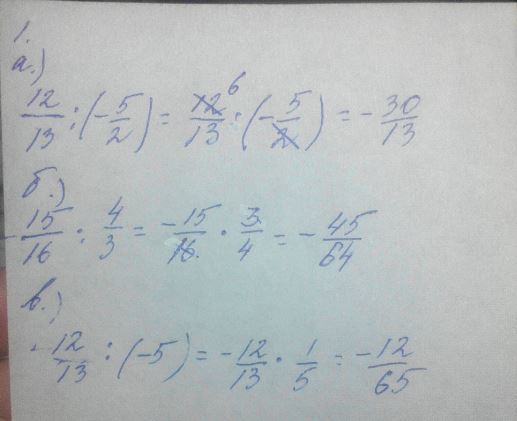 1.
а.)
12/13 : (-5/2) = 12/13 6 · (-5/2) = -30/13
б.)
-15/16 : 4/3 = -15/16 · 3/4 = -45/64
в.)
-12/13 : (-5) = -12/13 · 1/5 = -12/65